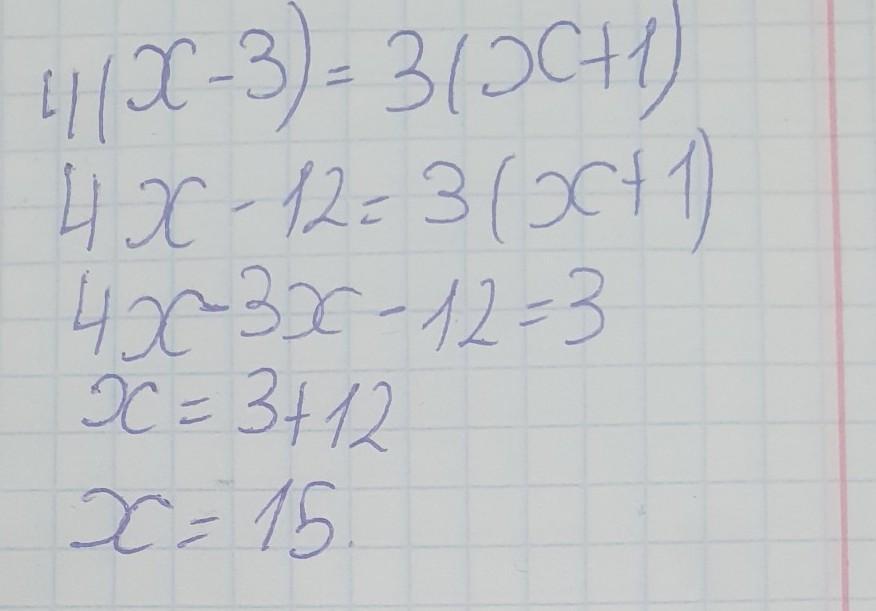 4(x-3)=3(x+1)
4x-12=3(x+1)
4x-3x-12=3
x=3+12
x=15.